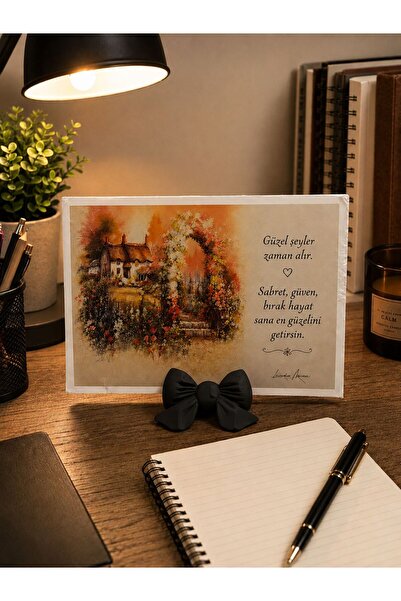 Güzel şeyler
zaman alır.
Sabret, güven,
bırak hayat
sana en güzelini
getirsin.
CALM